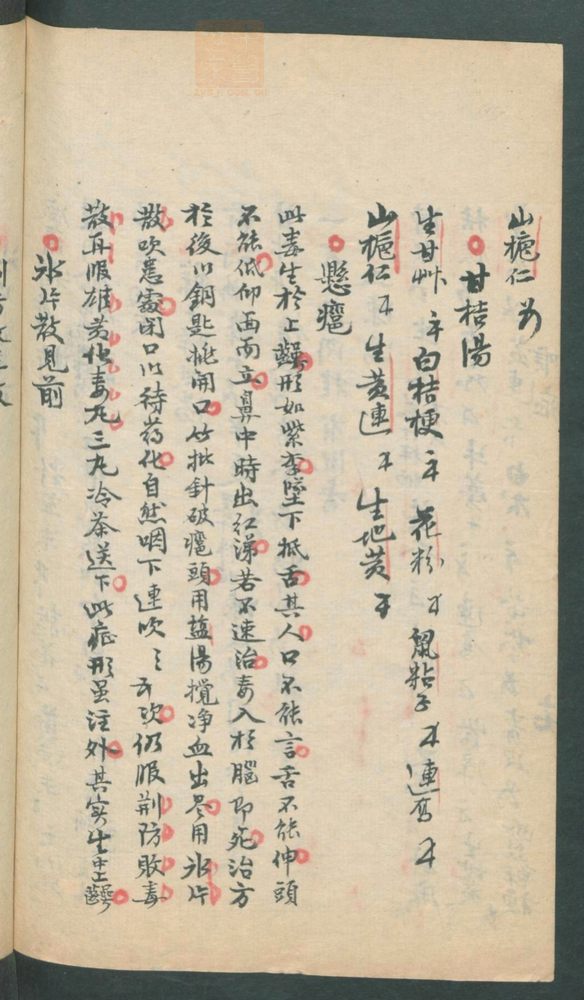 山梔仁
甘桔湯
生甘艸 白桔梗 花粉 鼠粘子 連喬
山梔仁 生黃連 生地黃
懸癰
此毒生於上齶形如紫李墜下抵舌其人口不能言舌不能伸頭
不能低仰面而立鼻中時出紅涕若不速治毒入於腦即死治方
於後以鋼匙挑開口竹批針破癰頭用盐湯攪净血出尽用氷片
散吹患處閉口以待药化自然咽下連吹 仍服荊防敗毒
散再服雄黃化毒丸三丸冷茶送下此症形虽注外其实生上齶
氷片散見前